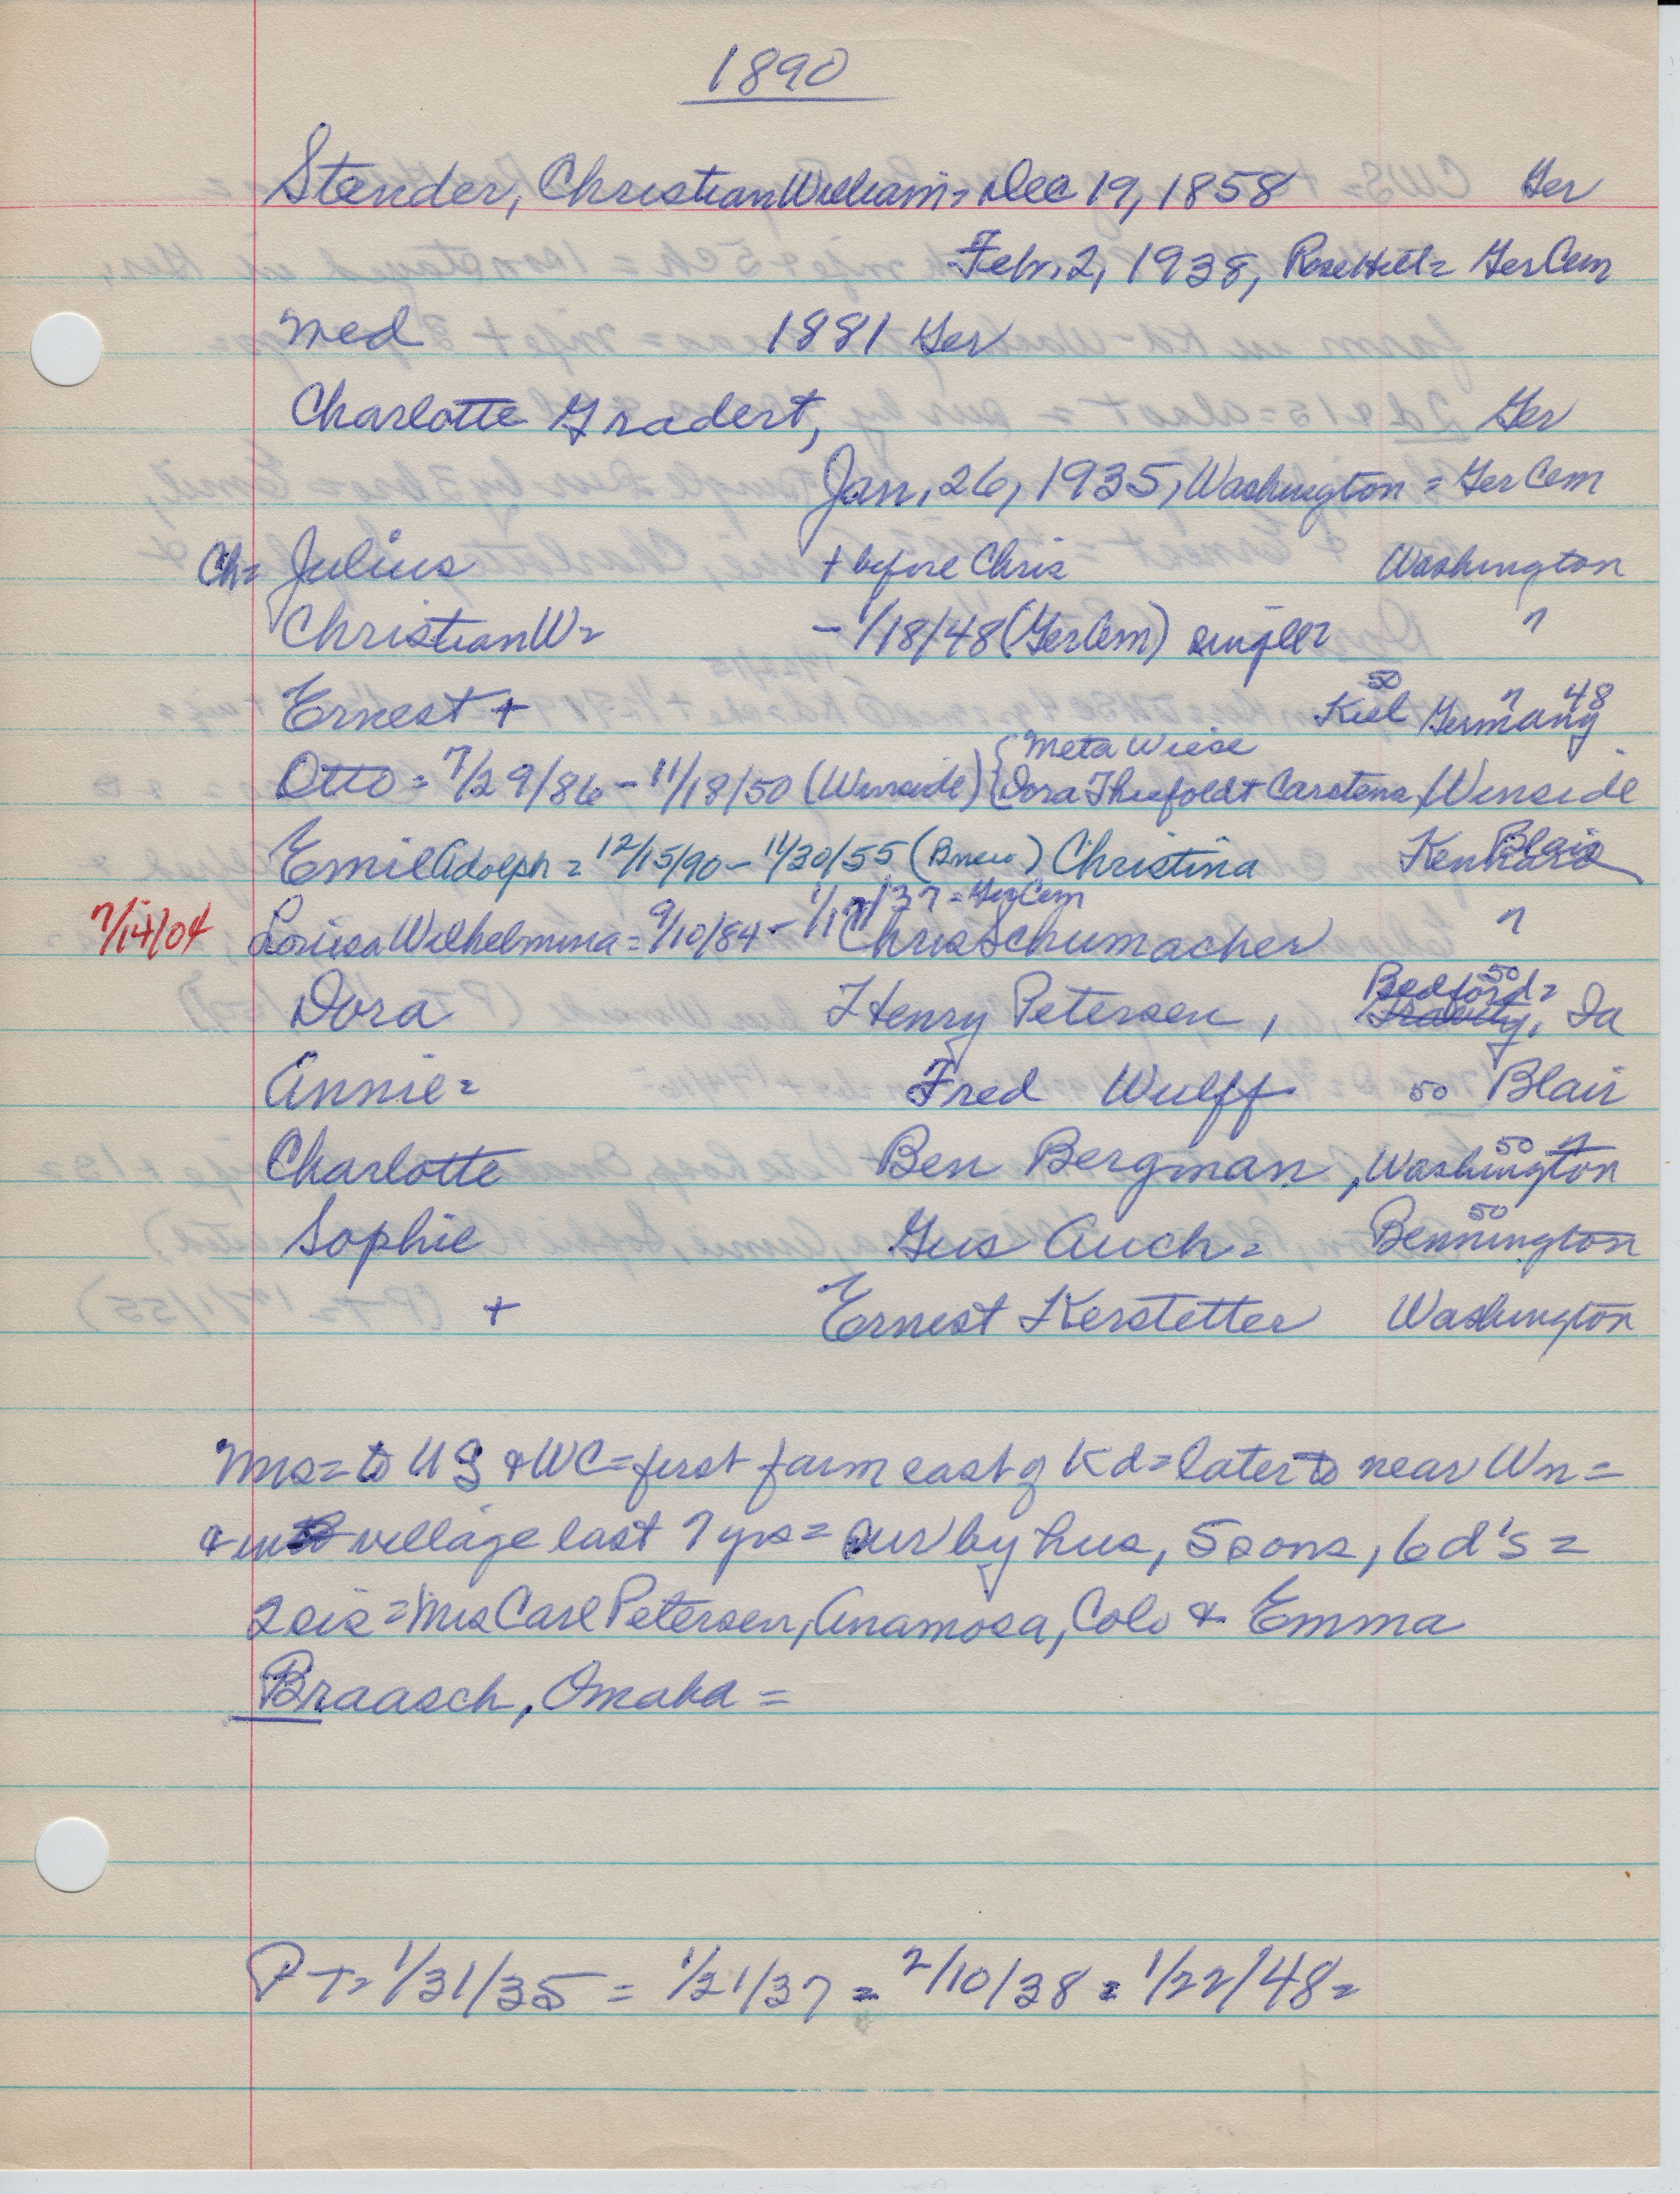 1890
Stender, Christian William = Dec 19, 1858 Ger
Feb. 2, 1938, Rose Hill = Ger Cem
Med 1881 Ger
Charlotte Gradert, Ger
Jan. 26, 1935, Washington = Ger Cem
Ch = Julius + before Chris Washington
Christian W = - 1/18/48 (Ger Cem) single = "
Ernest + 50 Kiel Germany " 48
Meta Wiese
Otto = 7/29/86 - 11/18/50 (Winside) { Dora + Carstens, Winside
Emil Adolph = 12/15/90 - 11/30/55 ( ) Christina Kennard Blair
1/17/37 = Ger Cem
7/14/04 Louisa Wilhelmina = 9/10/84 - Chris Schumacher "
Dora Henry Petersen, Bedford = 50 Ia
Annie = Fred Wulff 50 Blair
Charlotte Ben Bergman, Washington 50 "
Sophie Gus Auch = 50 Bennington
+ Ernest Kerstetter Washington
Mrs = to US & WC = first farm east of Kd = later to near Wn =
& in village last 7 yrs = sur by hus, 5 sons, 6 d's =
2 sis = Mrs Carl Petersen, Anamosa, Colo & Emma
Braasch, Omaha =
PT = 1/31/35 = 1/21/37 = 2/10/38 = 1/22/48 =